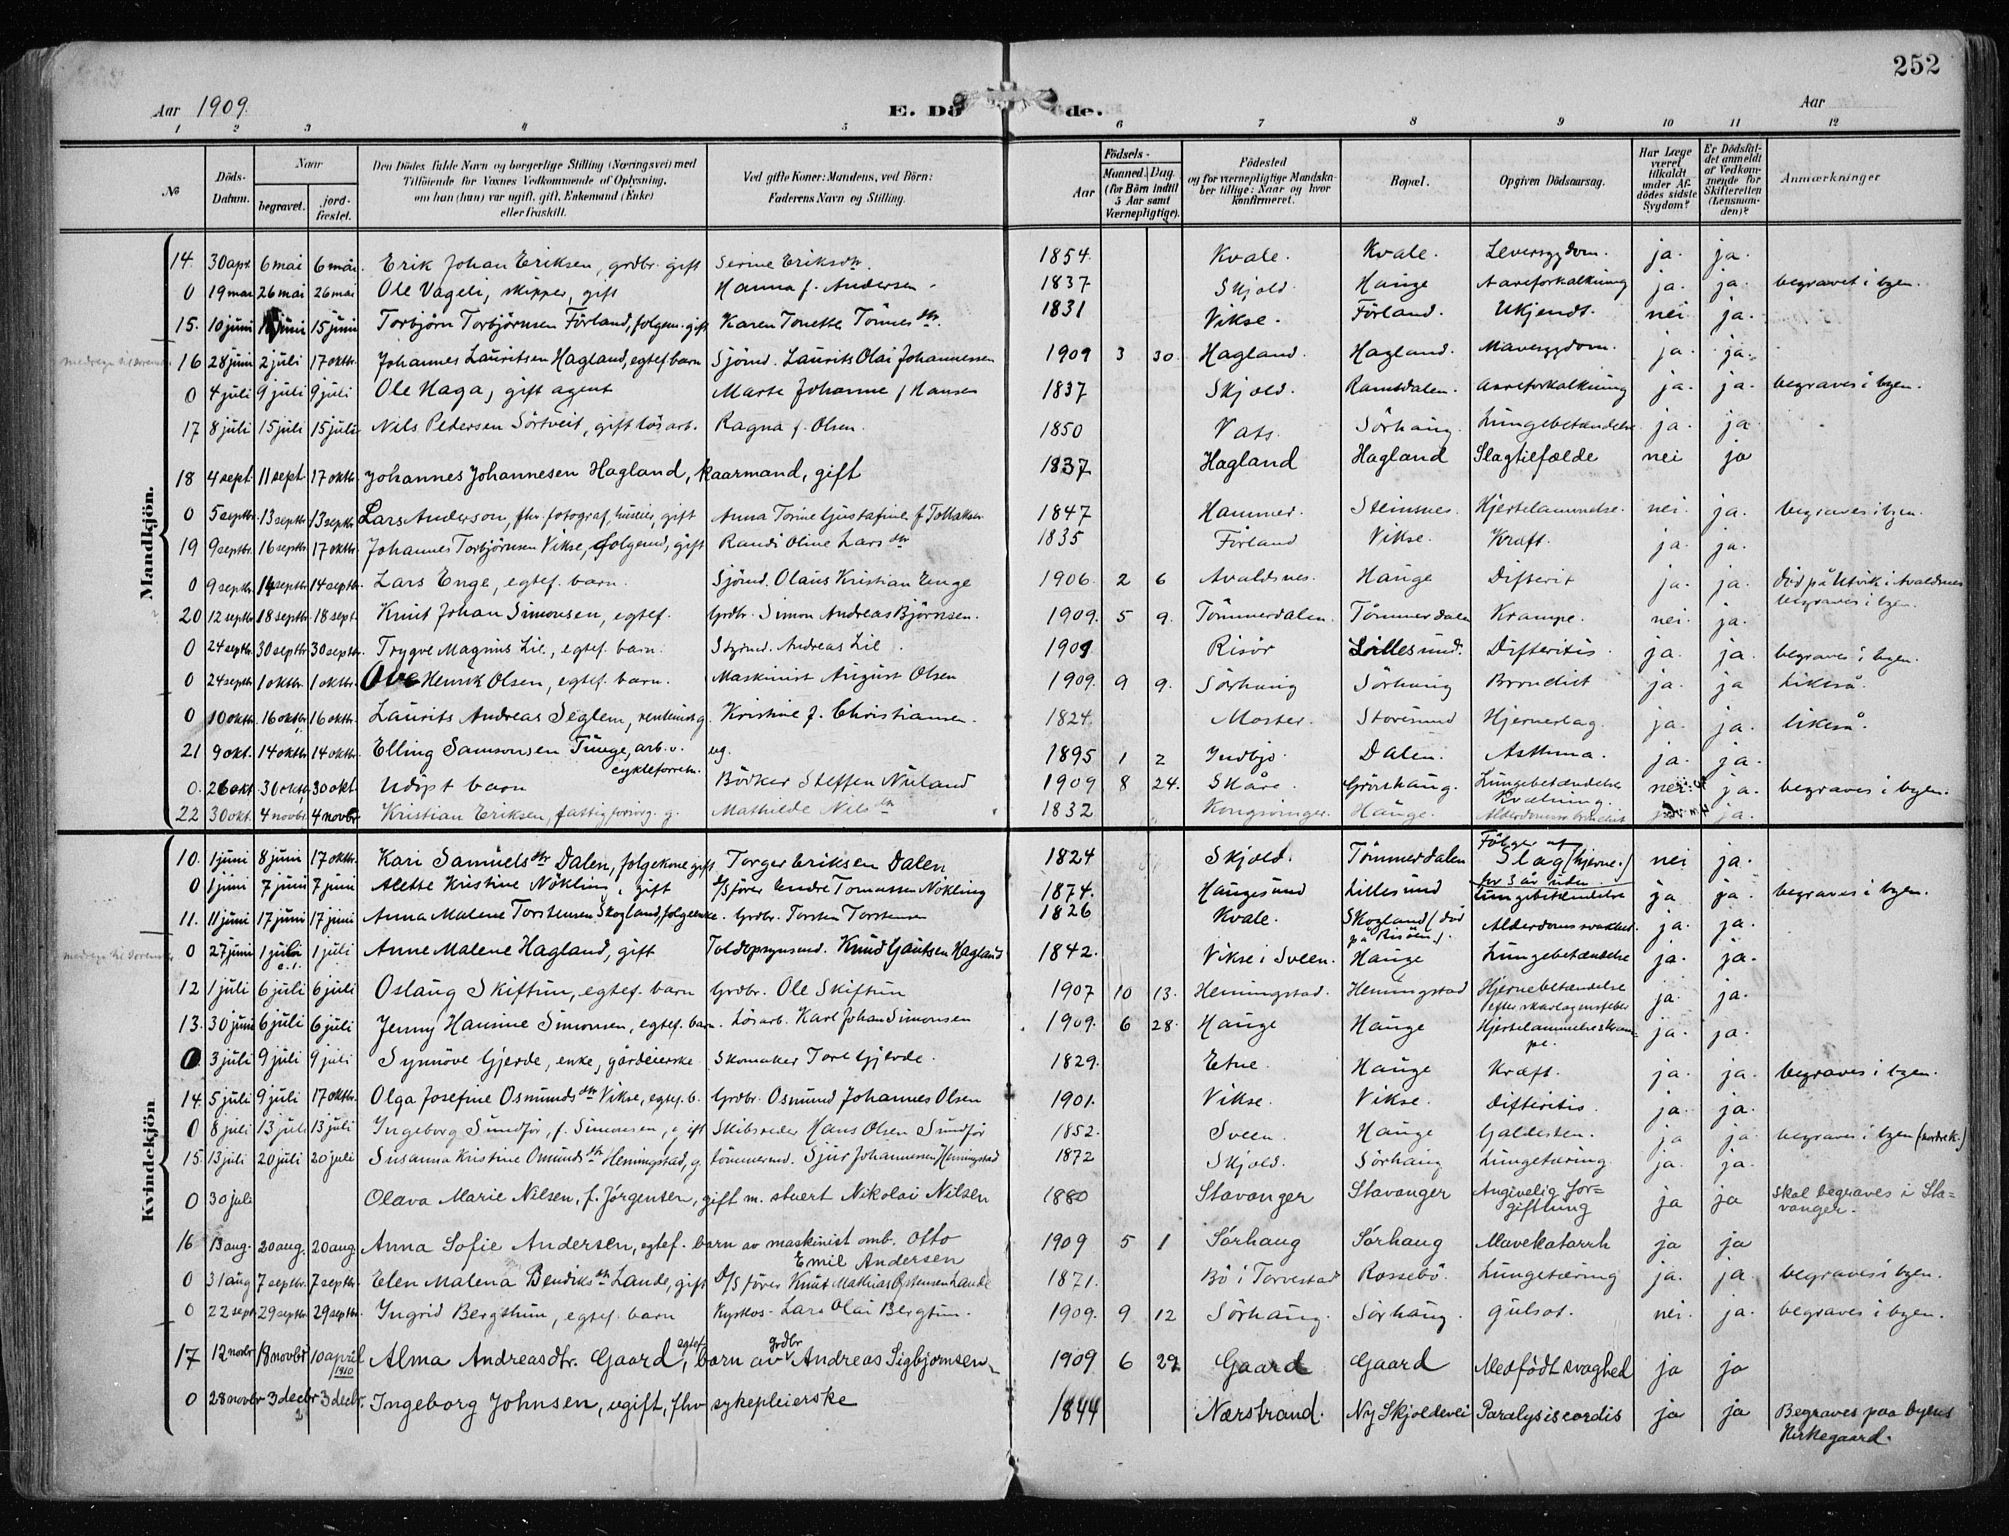 252
Aar 1909. E. Dö de. Aar
1 2 3 4 5 6 7 8 9 10 11 12
No Döds-Datum. Naar begravet. jord-fæstet. Den Dödes fulde Navn og borgerlige Stilling (Næringsvei) med Tilföiende for Voxnes Vedkommende af Oplysning, om han (hun) var ugift, gift, Enkemand (Enke) eller fraskilt. Ved gifte Koner: Mandens, ved Börn: Faderens Navn og Stilling. Födsels- Aar Maaned. Dag. (for Börn indtil 5 Aar samt Værnepligtige). Födested og for værnepligtige Mandskaber tillige: Naar og hvor konfirmeret. Bopæl. Opgiven Dödsaarsag. Har Læge været tilkaldt under Afdödes sidste Sygdom? Er Dödsfaldet anmeldt af Vedkommende for Skifteretten (Lensmanden)? Anmærkninger
Mandkjön.
14. 30 apr. 6 mai 6 mai. Erik Johan Eriksen, grdbr. gift Serine Eriksdtr. 1854. Kvale. Kvale. Leversygdom. ja. ja.
0 19 mai 26 mai 26 mai Ole Vageli, skipper, gift Hanna f. Andersen 1837 Skjold. Hauge Aareforkalkning ja. ja. begravet i byen.
15. 10 juni juni 15 juni Torbjörn Torbjörnsen Förland, folgem. gift Karen Tonette Tönnesdtr. 1831 Vikse. Förland. Ukjendt. nei ja.
16 28 juni 2 juli 17 oktbr. Johannes Lauritsen Hagland, egtef. barn Sjömd. Laurits Olai Johannessen 1909 3 30. Hagland. Hagland. Mavesygdom. ja. ja.
0 4 juli 9 juli 9 juli Ole Haga, gift agent Marte Johanne f Hansen 1837 Skjold. Ramsdalen. Aareforkalkning ja. ja. begraves i byen.
17 8 juli 15 juli 15 juli Nils Pedersen Sörtveit, gift lös arb. Ragna f. Olsen. 1850 Vats. Sörhaug. Lungebetændelse ja. ja
18 4 sept. 11 sept 17 oktbr. Johannes Johannesen Hagland, kaarmand, gift 1837 Hagland Hagland Slagtilfælde nei ja
0 5 septbr. 13 septbr 13 septbr Lars Anderson, fhv. fotograf, huseier, gift Anna Torine Gustafine f. 1847 Hammer. Steinsnes. Hjertelammelse. nei. ja. begraves i byen.
19 9 septbr. 16 septbr. 17 oktbr. Johannes Torbjörnsen Vikse, folgemd, gift Randi Oline Larsdtr 1835 Förland Vikse. Kræft. ja. ja.
0 9 septbr. 14 septbr 14 septbr Lars Enge, egtef. barn. Sjömd. Olaus Kristian Enge 1906. 2 6 Avaldsnes. Hauge Difterit ja. ja. död på Utvik i Avaldsnes begraves i byen.
20 12 septbr 18 septbr 18 sept. Knut Johan Simonsen, egtef. Grdbr. Simon Andreas Björnsen. 1909. 5 9. Tömmerdalen. Tömmerdalen Krampe. nei. ja.
0 24 septbr. 30 septbr 30 septbr. Trygve Magnus Lie, egtef. barn. Styrmd. Andreas Lie. 1909 Risör Lillesund. Difteritis. ja. ja. begraves i byen.
0 24 septbr 1 oktbr. 1 oktbr. Ove Henrik Olsen, egtef. barn. Maskinist August Olsen 1909. 9 9. Sörhaug Sörhaug Bronchit ja. ja Likeså.
0 10 oktbr. 16 oktbr. 16 oktbr. Laurits Andreas Seglem, rentenist g. Kristine f. Christiansen. 1824. Moster. Storesund Hjerneslag. ja. ja. likeså.
21 9 okt. 14 oktbr. 14 oktbr. Elling Samsonsen Tunge, arb. v. cykleforretn. ug. 1895 1 2 Indbjo Dalen. Asthma. ja. ja.
0. 26 okt. 30 oktbr. 30 okt. Udöpt barn Bödker Steffen Nuland 1909 8 24. Skåre. Grönhaug. Lungebetændelse Kvælning. nei. ja. begraves i byen.
22 30 okt. 4 novbr. 4 novbr Kristian Eriksen, fattigforsörg. g. Mathilde Nilsdtr 1832 Kongsvinger. Hauge. ja.
Kvindekjön
10. 1 juni 8 juni 17 oktbr. Kari Samuelsdtr Dalen, folgekone gift Torger Eriksen Dalen 1824 Skjold. Tömmerdalen Fölger af Slag (hjerne.) for 3 år siden nei ja.
0 1 juni 7 juni 7 juni Alette Kristine Nökling, gift D/S förer Endre Tomassen Nökling 1874. Haugesund Lillesund Lungebetændelse ja ja. begraves i byen.
11. 11 juni 17 juni 17 juni Anna Malene Torstensen Skogland, folgeenke. Grdbr. Torsten Torstensen 1826 Kvale. Skogland (död på Risöen). Alderdomssvakhet. ja. ja.
0 27 juni 1 juli 1 juli Anne Malene Hagland, gift Toldopsynsmd. Knud Gautsen Hagland 1842. Vikse i Sveen. Hauge Lungebetændelse ja. ja.
12 1 juli 6 juli 6 juli Oslaug Skiftun, egtef. barn Grdbr. Ole Skiftun 1907 10 13. Hemingstad. Hemingstad Hjernebetændelse efter skarlagensfeber ja. ja.
13. 30 juni 6 juli 6 juli Jenny Hansine Simonsen, egtef. barn. Lösarb. Karl Johan Simonsen 1909. 6 28. Hauge Hauge Hjertelammelse & krampe. ja. ja.
0 3 juli 9 juli 9 juli Synnöve Gjerde, enke, gårdeierske Skomaker Tore Gjerde. 1829. Etne. Hauge Kræft. ja. ja. begraves i byen.
14. 5 juli 9 juli 17 oktbr. Olga Josefine Osmundsdtr Vikse, egtef. b. Grdbr. Osmund Johannes Olsen 1901. Vikse. Vikse. Difteritis. ja. ja.
0 8 juli 13 juli 13 juli Ingeborg Sundför, f. Simonsen, gift Skibsreder Hans Olsen Sundför 1852. Sveen. Hauge Galdesten. ja ja. begraves i byen (nordre k.)
15. 13 juli 20 juli 20 juli Susanna Kristine Omundsdtr Hemingstad, g. tömmermd. Sjur Johannessen Hemingstad 1872 Skjold. Sörhaug Lungetæring. ja. ja.
0 30 juli Olava Marie Nilsen, f. Jørgensen, gift m. stuert Nikolai Nilsen 1880 Stavanger Stavanger Angivelig forgiftning ja ja Skal begraves i Stavanger.
16 13 aug. 20 aug. 20 aug. Anna Sofie Andersen, egtef. barn av maskinist omb. Otto Emil Andersen 1909 5 1 Sørhaug Sørhaug Mavekatarrh ja ja
0 31 aug 7 septbr. 7 septbr. Elen Malena Bendiksdtr Lande, gift D/S förer Knut Mathias Östensen Lande 1871. Bö i Torvestad Rossebö. Lungetæring ja. ja. begraves i byen.
0 22 sept 29 septbr 29 septbr Ingrid Bergthun, egtef. barn Kyrkos. Lars Olai Bergtun. 1909. 9 12 Sörhaug. Sörhaug. Gulsot. nei. ja. begraves i byen.
17 12 novbr 18 novbr 10 april 1910 Alma Andreasdtr. Gaard, egtef. barn av grdbr Andreas Sigbjørnsen 1909 6 29 Gaard Gaard Medfødt svaghed ja ja
0 28 novbr 3 decbr 3 decbr. Ingeborg Johnsen, ugift, fhv sykepleierske 1844 Nærstrand. Ny Skjoldevei Paralysis cordis ja ja Begraves paa byens Kirkegaard.